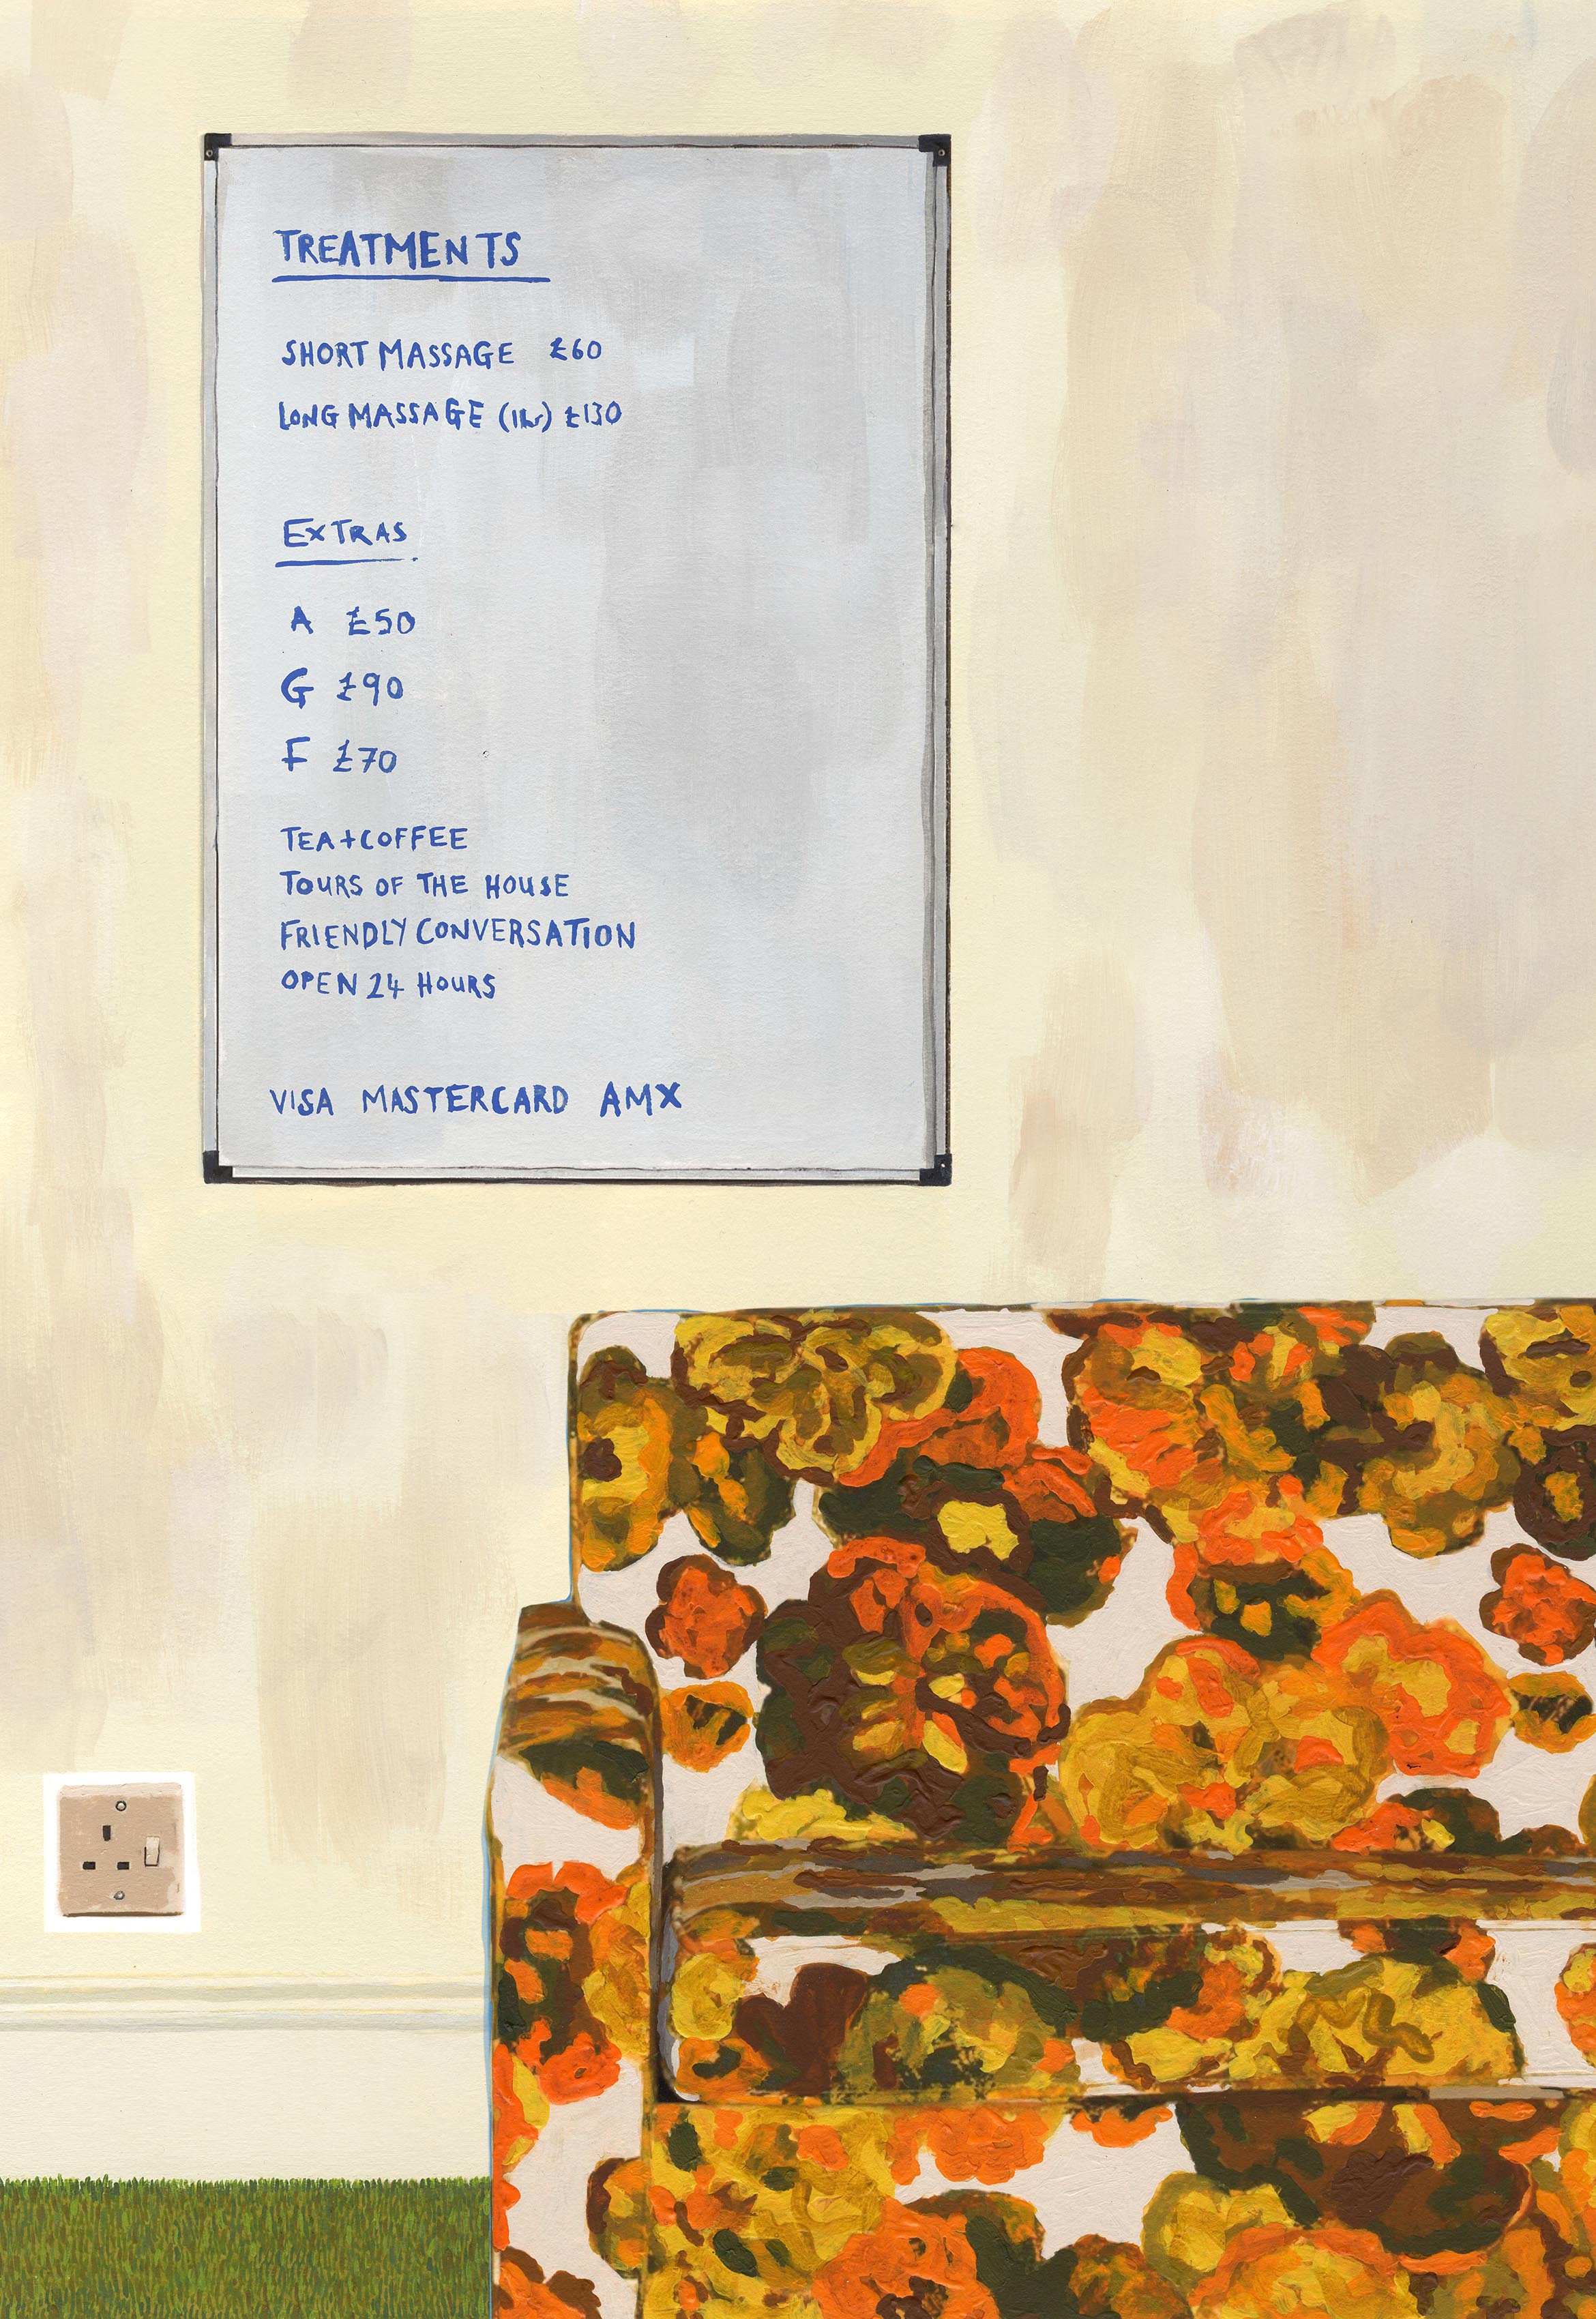 TREATMENTS
SHORT MASSAGE £60
LONG MASSAGE (1hr) £130
EXTRAS
A £50
G £90
F £70
TEA+COFFEE
TOURS OF THE HOUSE
FRIENDLY CONVERSATION
OPEN 24 HOURS
VISA MASTERCARD AMX